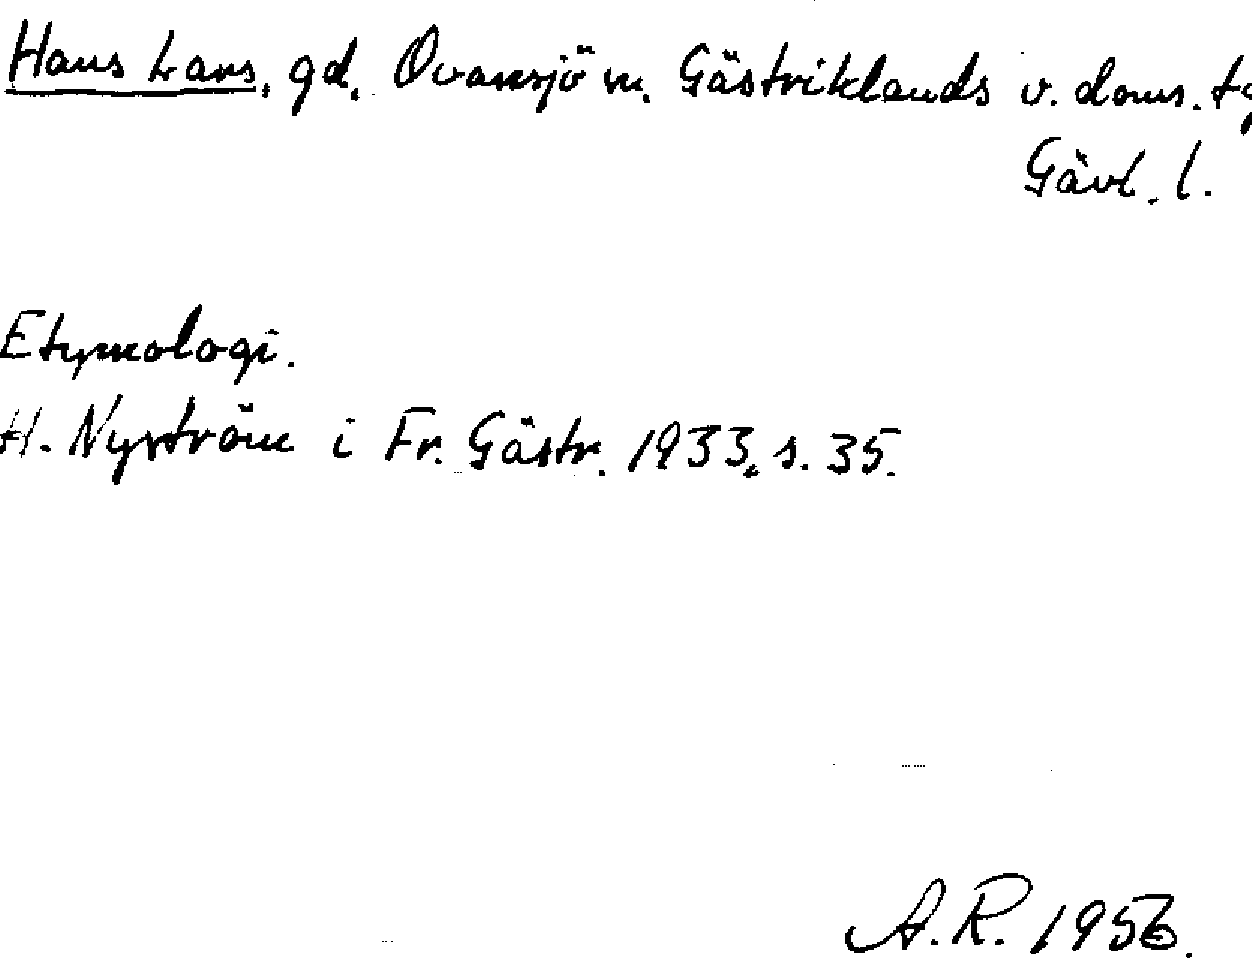 Hans Lars, gd, Ovansjö sn. Gästriklands v. doms.
Gävl. l.
Etymologi.
H. Nyström i Fr. Gästr. 1933, s. 35.
A.R. 1956.